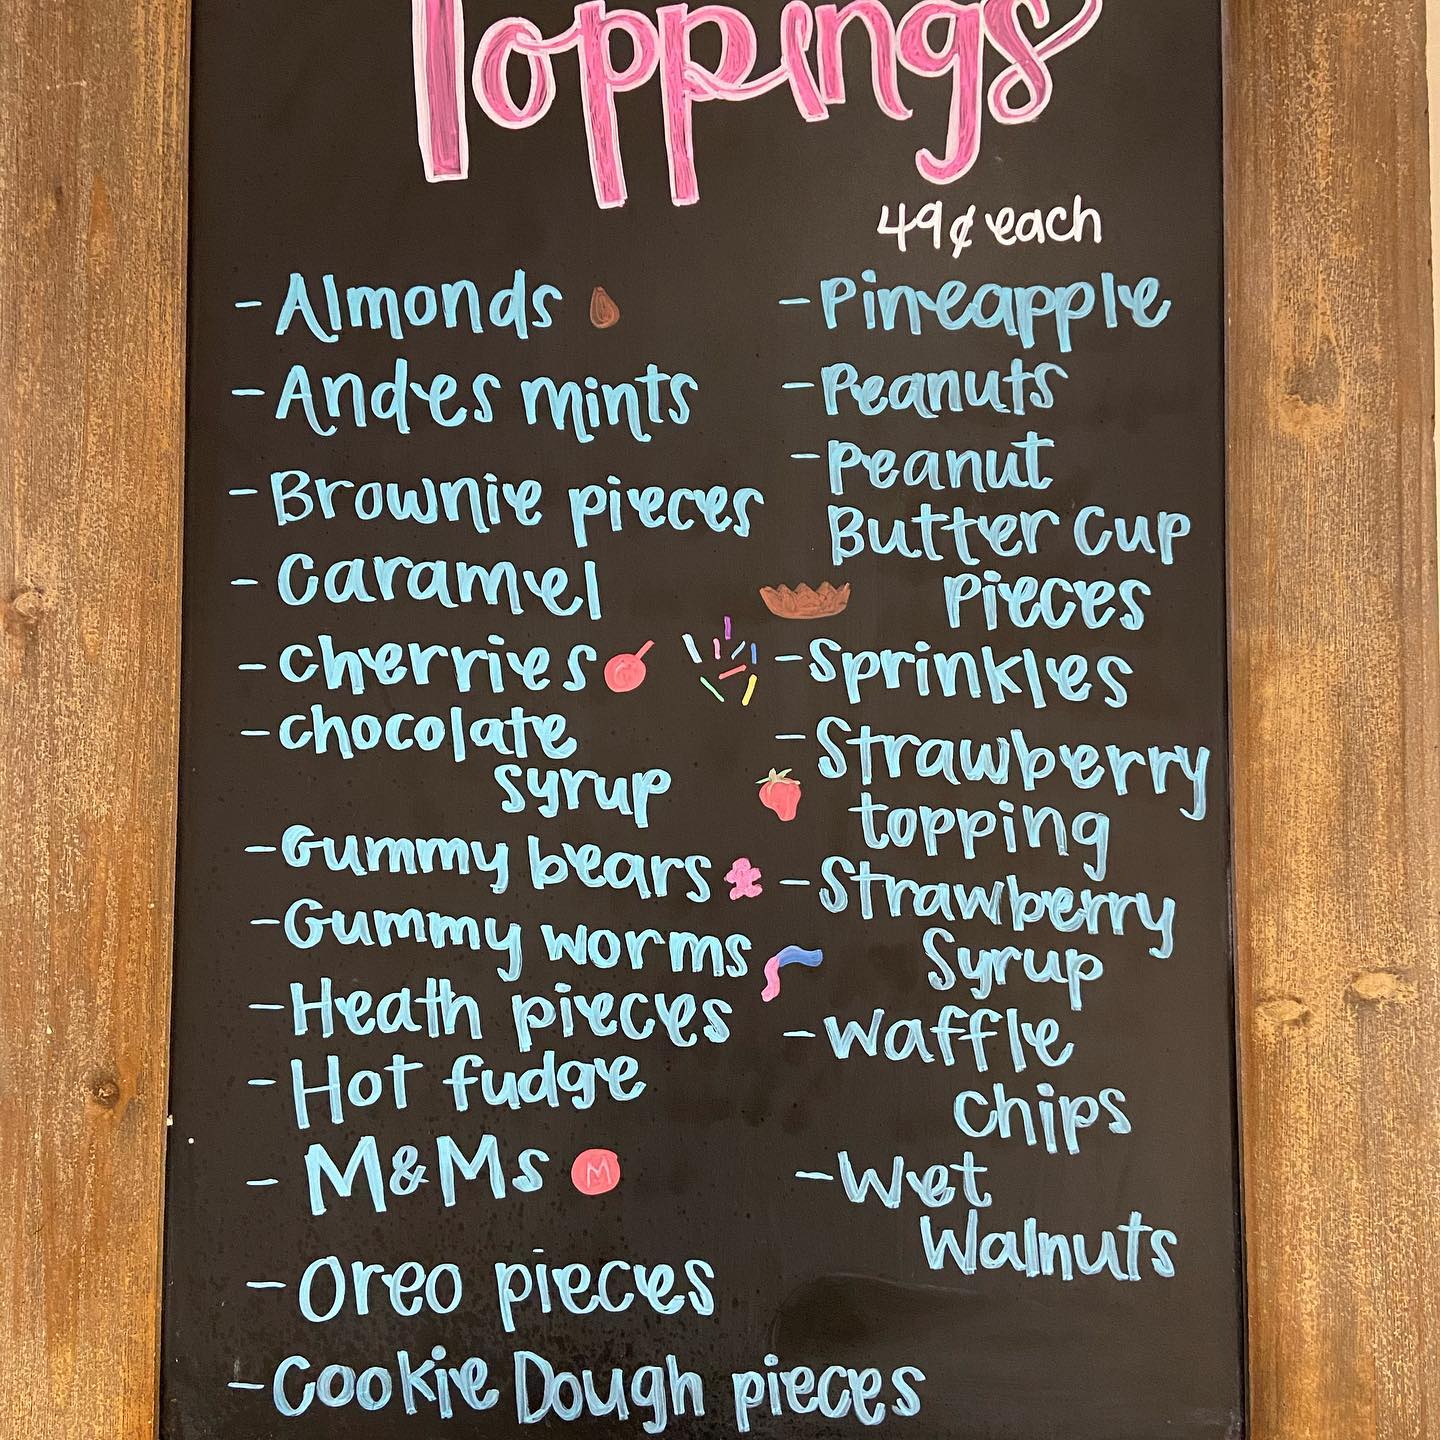 Toppings
49¢ each
- Almonds
- Andes mints
- Brownie pieces
- Caramel
- cherries
- chocolate
syrup
- Gummy bears
- Gummy worms
- Heath pieces
- Hot fudge
- M&Ms
M
- Oreo pieces
- Cookie Dough pieces
- Pineapple
- Peanuts
- Peanut
Butter Cup
Pieces
- Sprinkles
- Strawberry
topping
- Strawberry
Syrup
- Waffle
Chips
- Wet
Walnuts